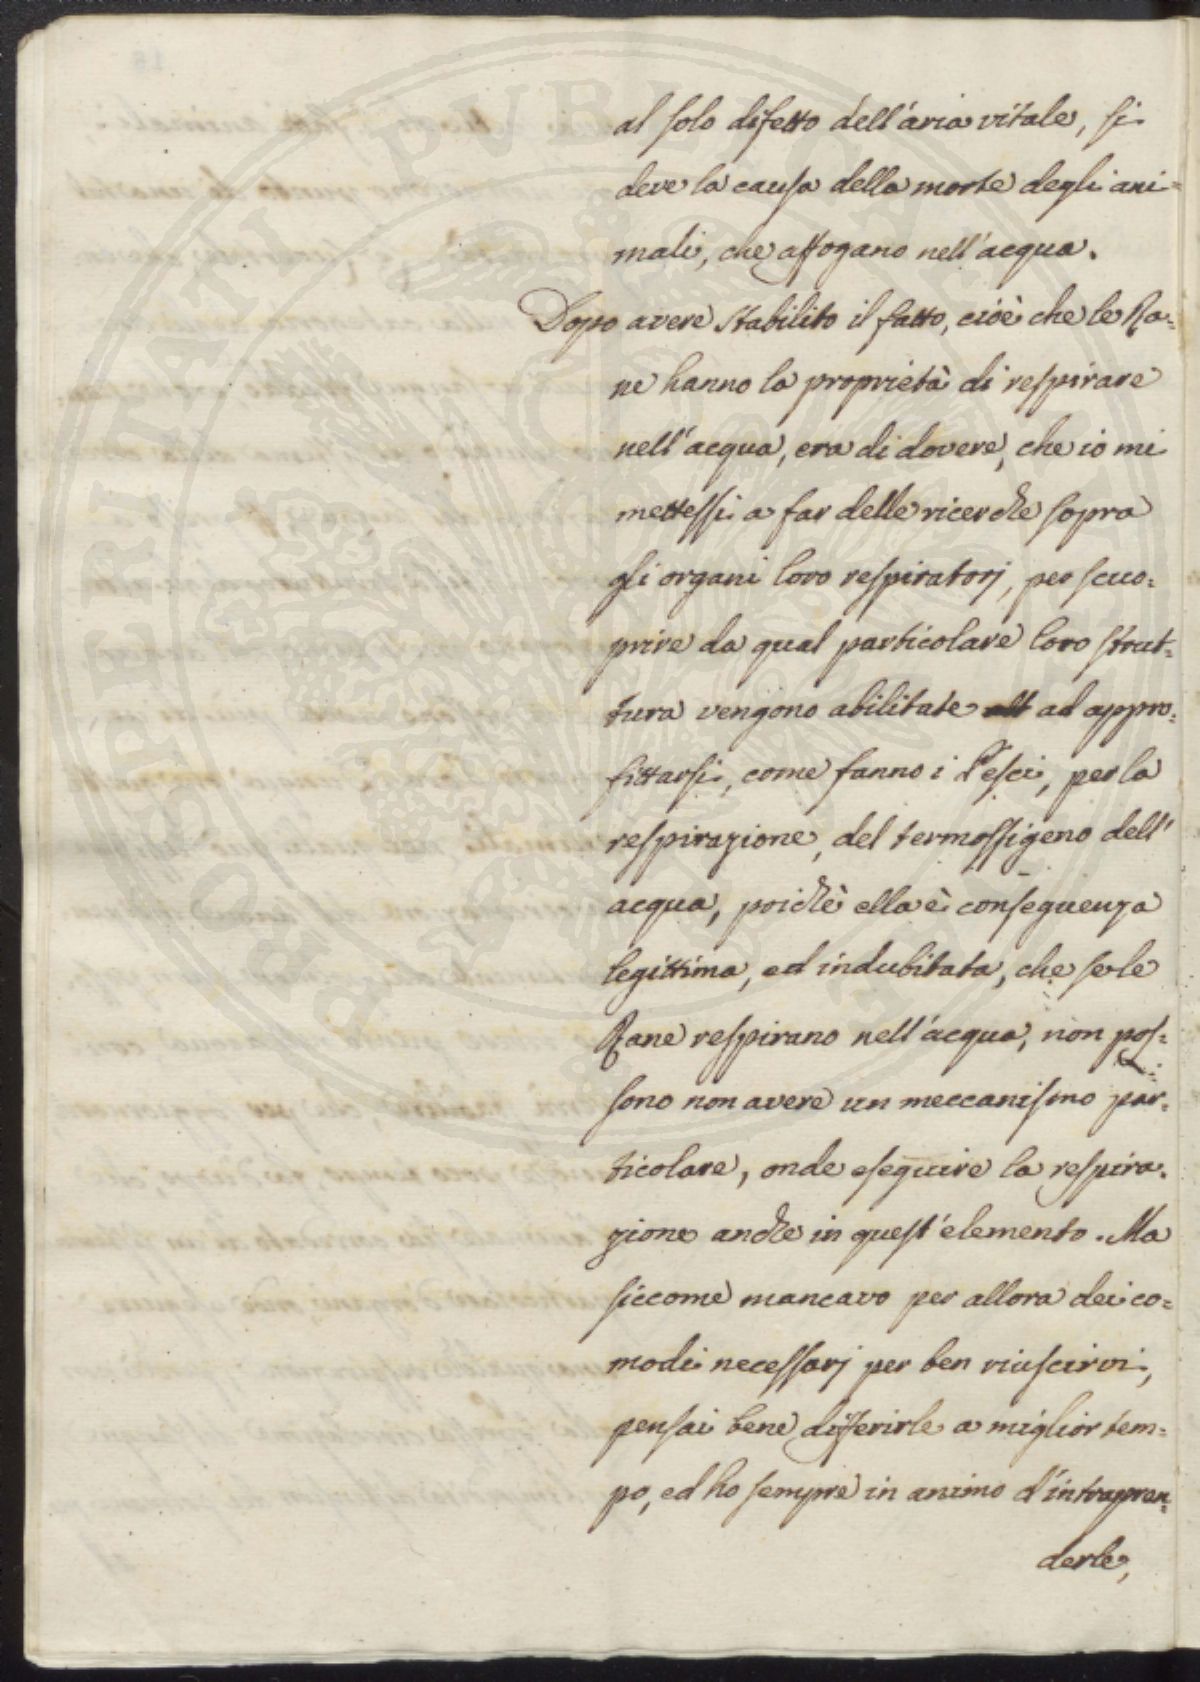 al solo difetto dell'aria vitale, si
deve la causa della morte degli ani=
mali, che affogano nell'acqua.
Dopo avere stabilito il fatto, cioè che le Ra=
ne hanno la proprietà di respirare
nell'acqua, era di dovere, che io mi
mettessi a far delle ricerche sopra
gli organi loro respiratorj, per scuo=
prire da qual particolare loro strut=
tura vengono abilitate ad appro=
fittarsi, come fanno i Pesci, per la
respirazione, del termossigeno dell'
acqua, poichè ella è conseguenza
legittima, ed indubitata, che se le
Rane respirano nell'acqua, non pos=
sono non avere un meccanismo par=
ticolare, onde eseguire la respira=
zione anche in quest'elemento. Ma
siccome mancavo per allora dei co=
modi necessarj per ben riuscirvi,
pensai bene differirle a miglior tem=
po, ed ho sempre in animo d'intrapren=
derle,
PROSPERITATI PVBLICAE